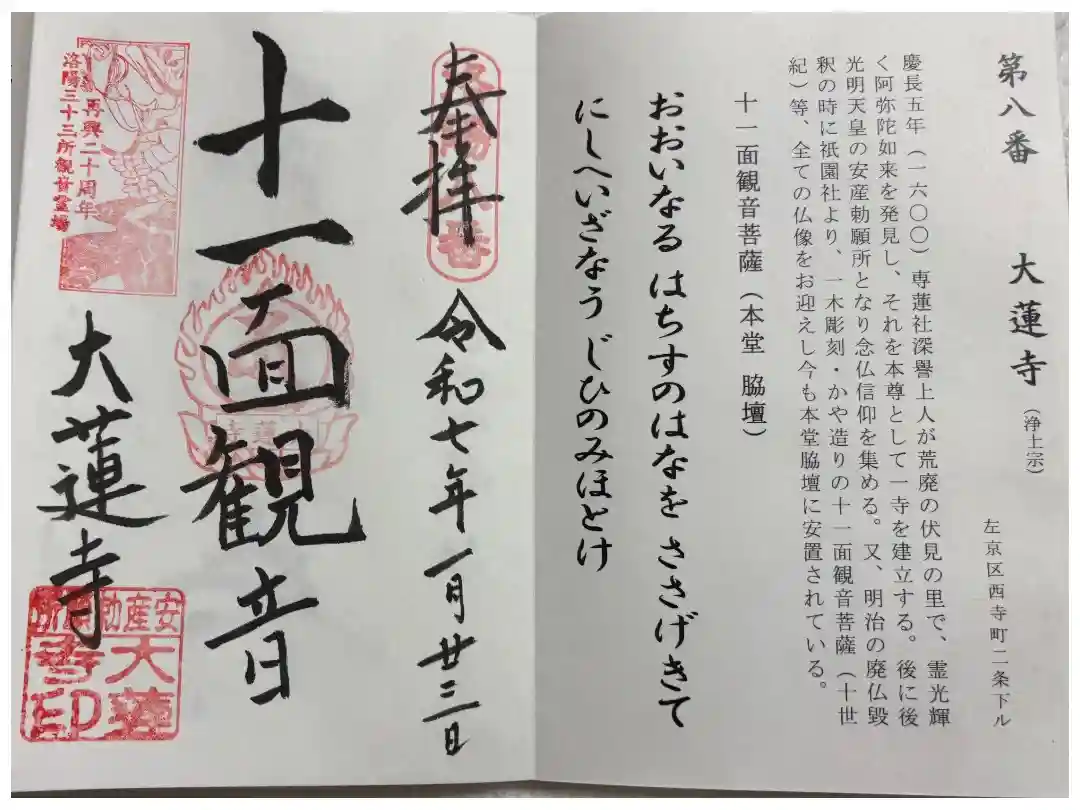 第八番　大蓮寺（浄土宗）
左京区西寺町二条下ル
慶長五年（一六〇〇）専蓮社深譽上人が荒廃の伏見の里で、霊光輝
く阿弥陀如来を発見し、それを本尊として一寺を建立する。後に後
光明天皇の安産勅願所となり念仏信仰を集める。又、明治の廃仏毀
釈の時に祇園社より、一木彫刻・かや造りの十一面観音菩薩（十世
紀）等、全ての仏像をお迎えし今も本堂脇壇に安置されている。
十一面観音菩薩（本堂　脇壇）
おおいなる はちすのはなを ささげきて
にしへいざなう じひのみほとけ
奉拝
洛陽八番
令和七年一月廿三日
十一面観音
大蓮寺
大蓮寺
再興二十周年
洛陽三十三所観音霊場
安産勅願所
大蓮
寺印